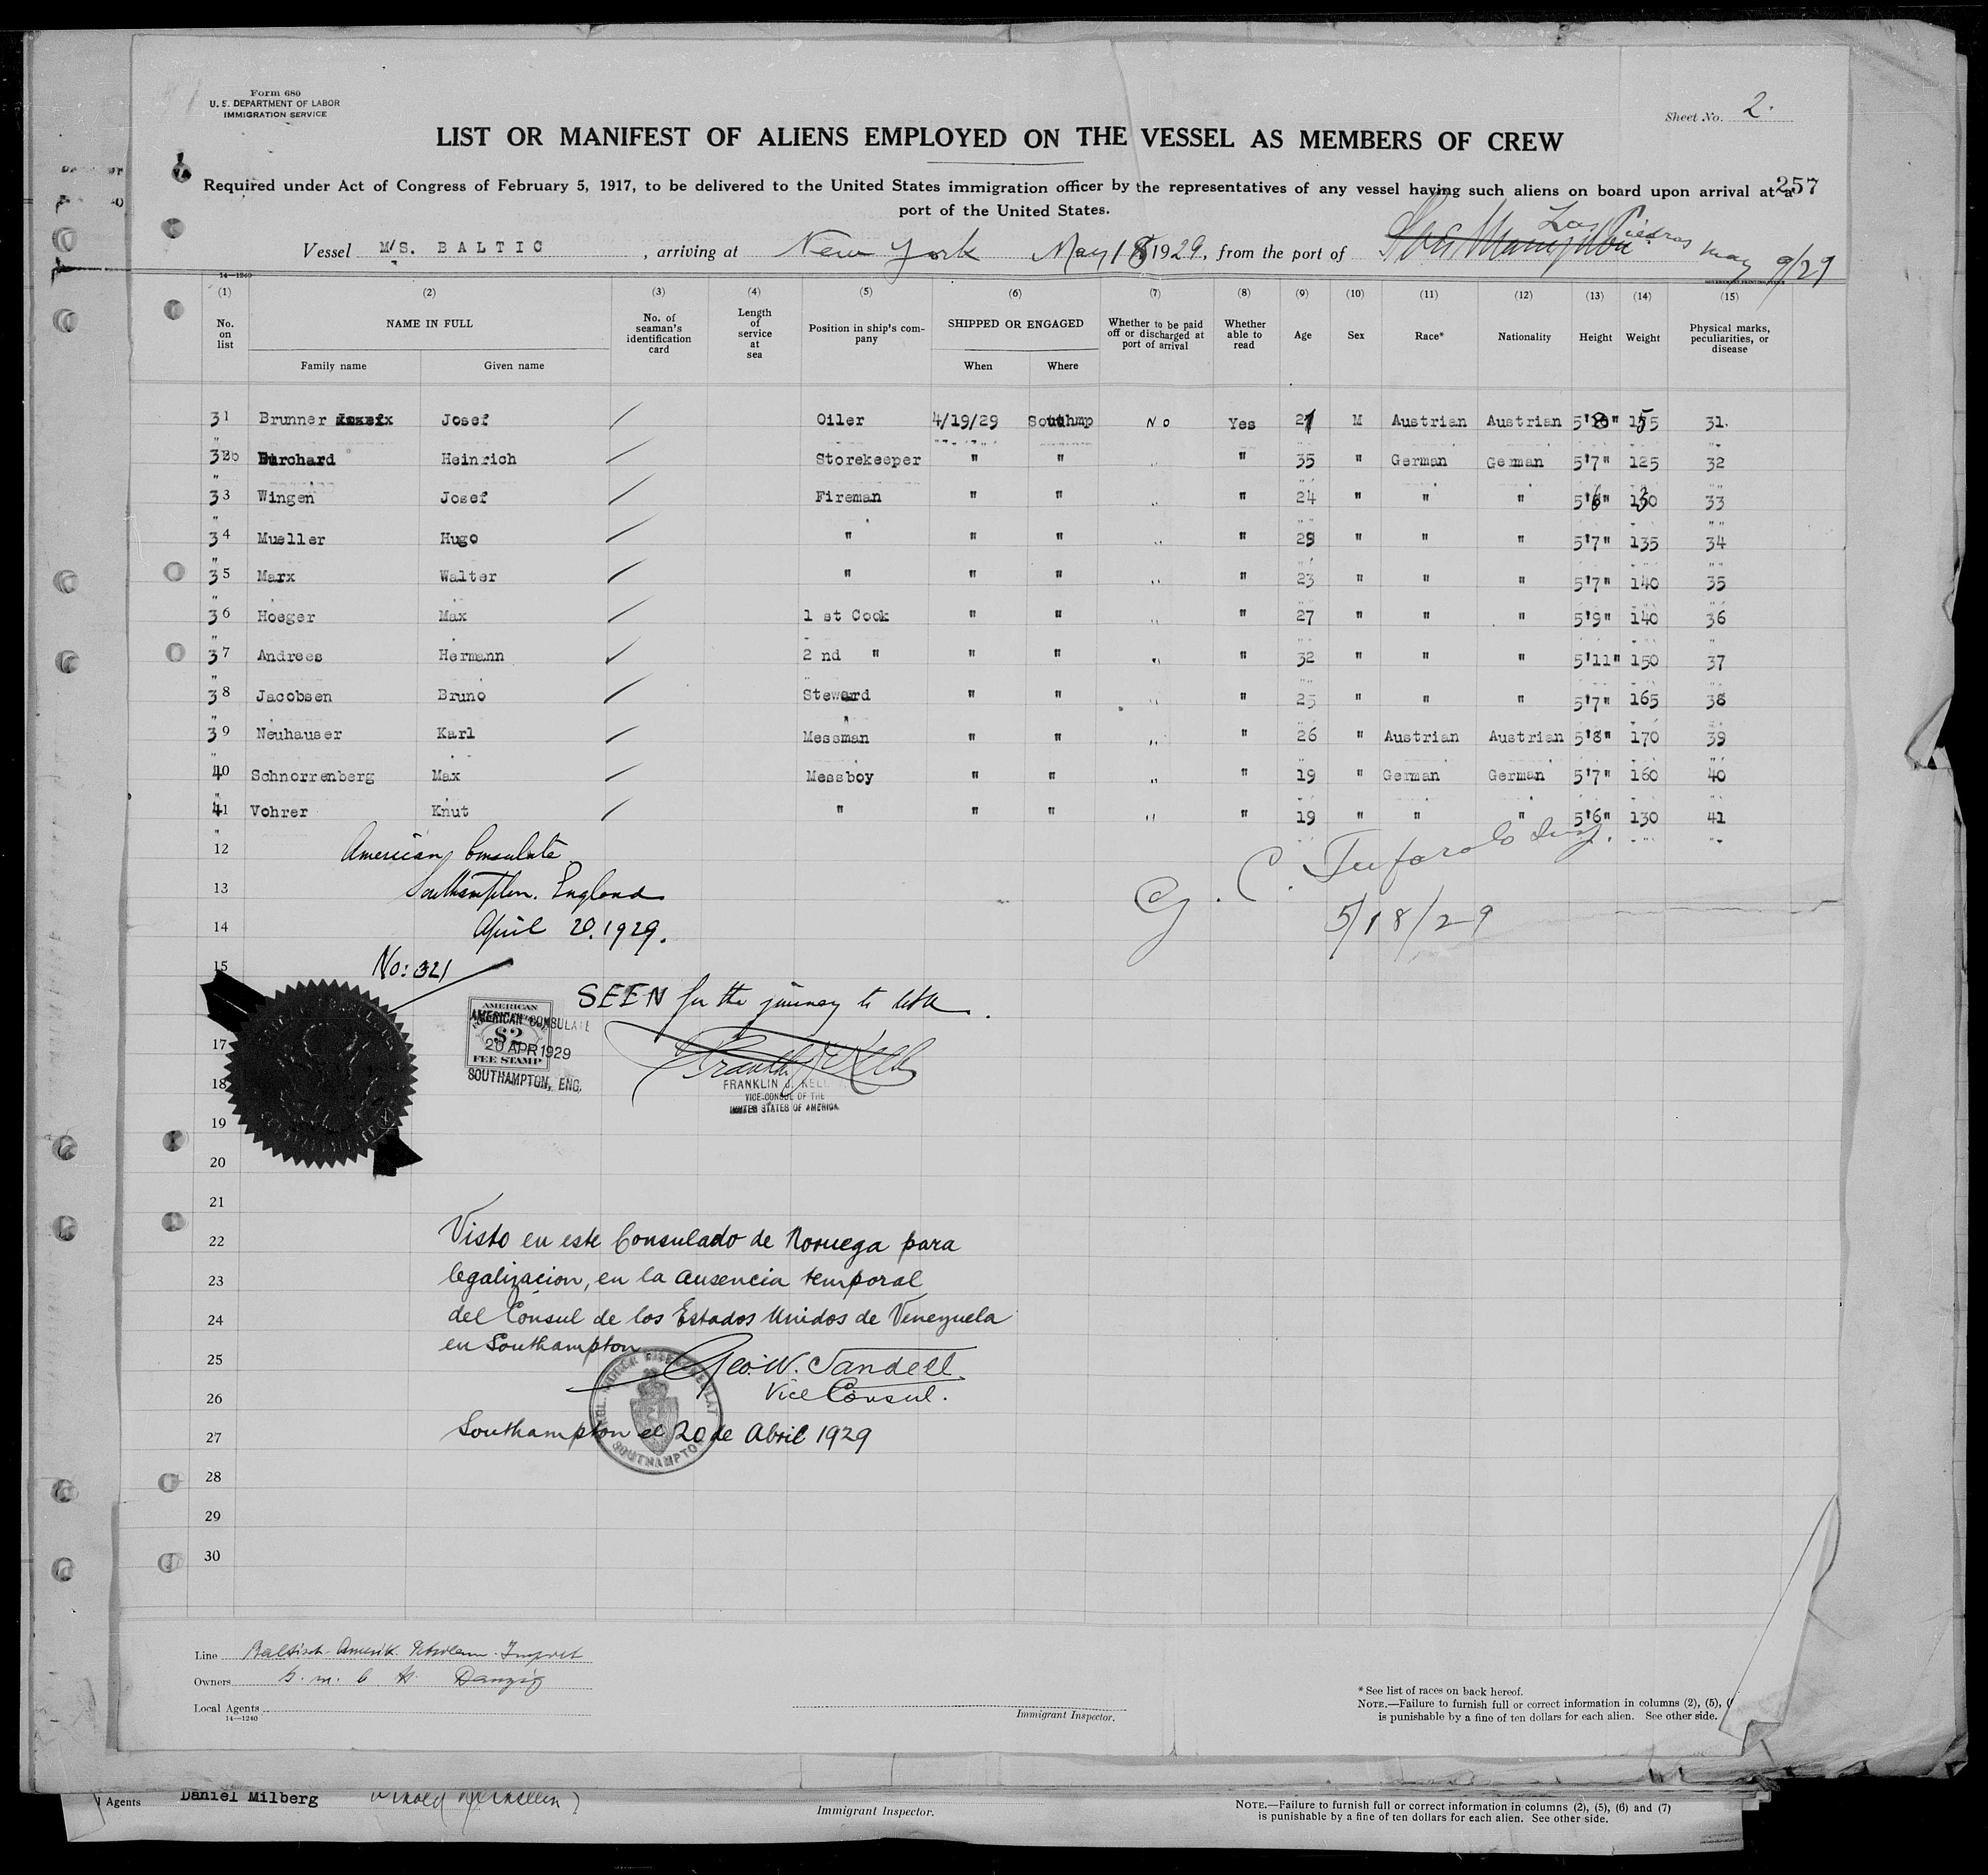 Form 680
U. S. DEPARTMENT OF LABOR
IMMIGRATION SERVICE
Sheet No. 2.
LIST OR MANIFEST OF ALIENS EMPLOYED ON THE VESSEL AS MEMBERS OF CREW
Required under Act of Congress of February 5, 1917, to be delivered to the United States immigration officer by the representatives of any vessel having such aliens on board upon arrival at a
257
port of the United States.
Las Piedras
Vessel M/S. BALTIC, arriving at New York May 18 1929, from the port of Southampton May 9/29
14—1240
(1) (2) (3) (4) (5) (6) (7) (8) (9) (10) (11) (12) (13) (14) (15)
No. on list NAME IN FULL No. of seaman's identification card Length of service at sea Position in ship's company SHIPPED OR ENGAGED Whether to be paid off or discharged at port of arrival Whether able to read Age Sex Race* Nationality Height Weight Physical marks, peculiarities, or disease
Family name Given name When Where
31 Brunner Josef Oiler 4/19/29 Southmp No Yes 2 M Austrian Austrian 5' 155 31.
32 Burchard Heinrich Storekeeper " " " " 35 " German German 5'7" 125 32
33 Wingen Josef Fireman " " " " 24 " " " 5'6" 130 33
34 Mueller Hugo " " " " " 29 " " " 5'7" 135 34
35 Marx Walter " " " " " 23 " " " 5'7" 140 35
36 Hoeger Max 1 st Cook " " " " 27 " " " 5'9" 140 36
37 Andrees Hermann 2 nd " " " " " 32 " " " 5'11" 150 37
38 Jacobsen Bruno Steward " " " " 25 " " " 5'7" 165 38
39 Neuhauser Karl Messman " " " " 26 " Austrian Austrian 5'8" 170 39
40 Schnorrenberg Max Messboy " " " " 19 " German German 5'7" 160 40
41 Vohrer Knut " " " " " 19 " " " 5'6" 130 41
12 American Consulate
13 Southampton. England
14 April 20. 1929.
5/18/29
15 No: 321
SEEN for the journey to USA.
AMERICAN
AMERICAN CONSULATE
$2
20 APR 1929
FEE STAMP
SOUTHAMPTON, ENG.
17
18
FRANKLIN J. KELL
VICE-CONSUL OF THE
UNITED STATES OF AMERICA
19
20
21
22 Visto en este Consulado de Noruega para
23 legalizacion, en la ausencia temporal
24 del Cónsul de los Estados Unidos de Venezuela
en Southampton
25 Geo. W. Sandell.
26 Vice Consul.
SOUTHAMPTON
27 Southampton el 20 de Abril 1929
28
29
30
Line Baltisch-Amerik. Petroleum-Import
Owners G. m. b. H. Danzig
Local Agents
14—1240
Immigrant Inspector.
* See list of races on back hereof.
NOTE.—Failure to furnish full or correct information in columns (2), (5), (
is punishable by a fine of ten dollars for each alien. See other side.
Agents Daniel Milberg
Immigrant Inspector.
NOTE.—Failure to furnish full or correct information in columns (2), (5), (6) and (7)
is punishable by a fine of ten dollars for each alien. See other side.